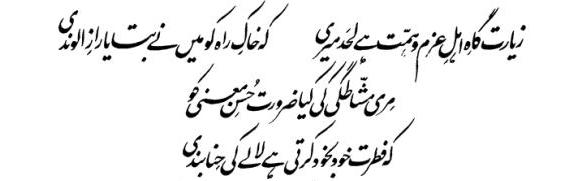 زیارت گاہِ اہلِ عزم و ہمّت ہے لحد میری کہ خاکِ راہ کو میں نے بتایا رازِ الوندی
مری مشّاطگی کی کیا ضرورت حُسنِ معنی کو
کہ فطرت خود بخود کرتی ہے لالے کی حِنا بندی